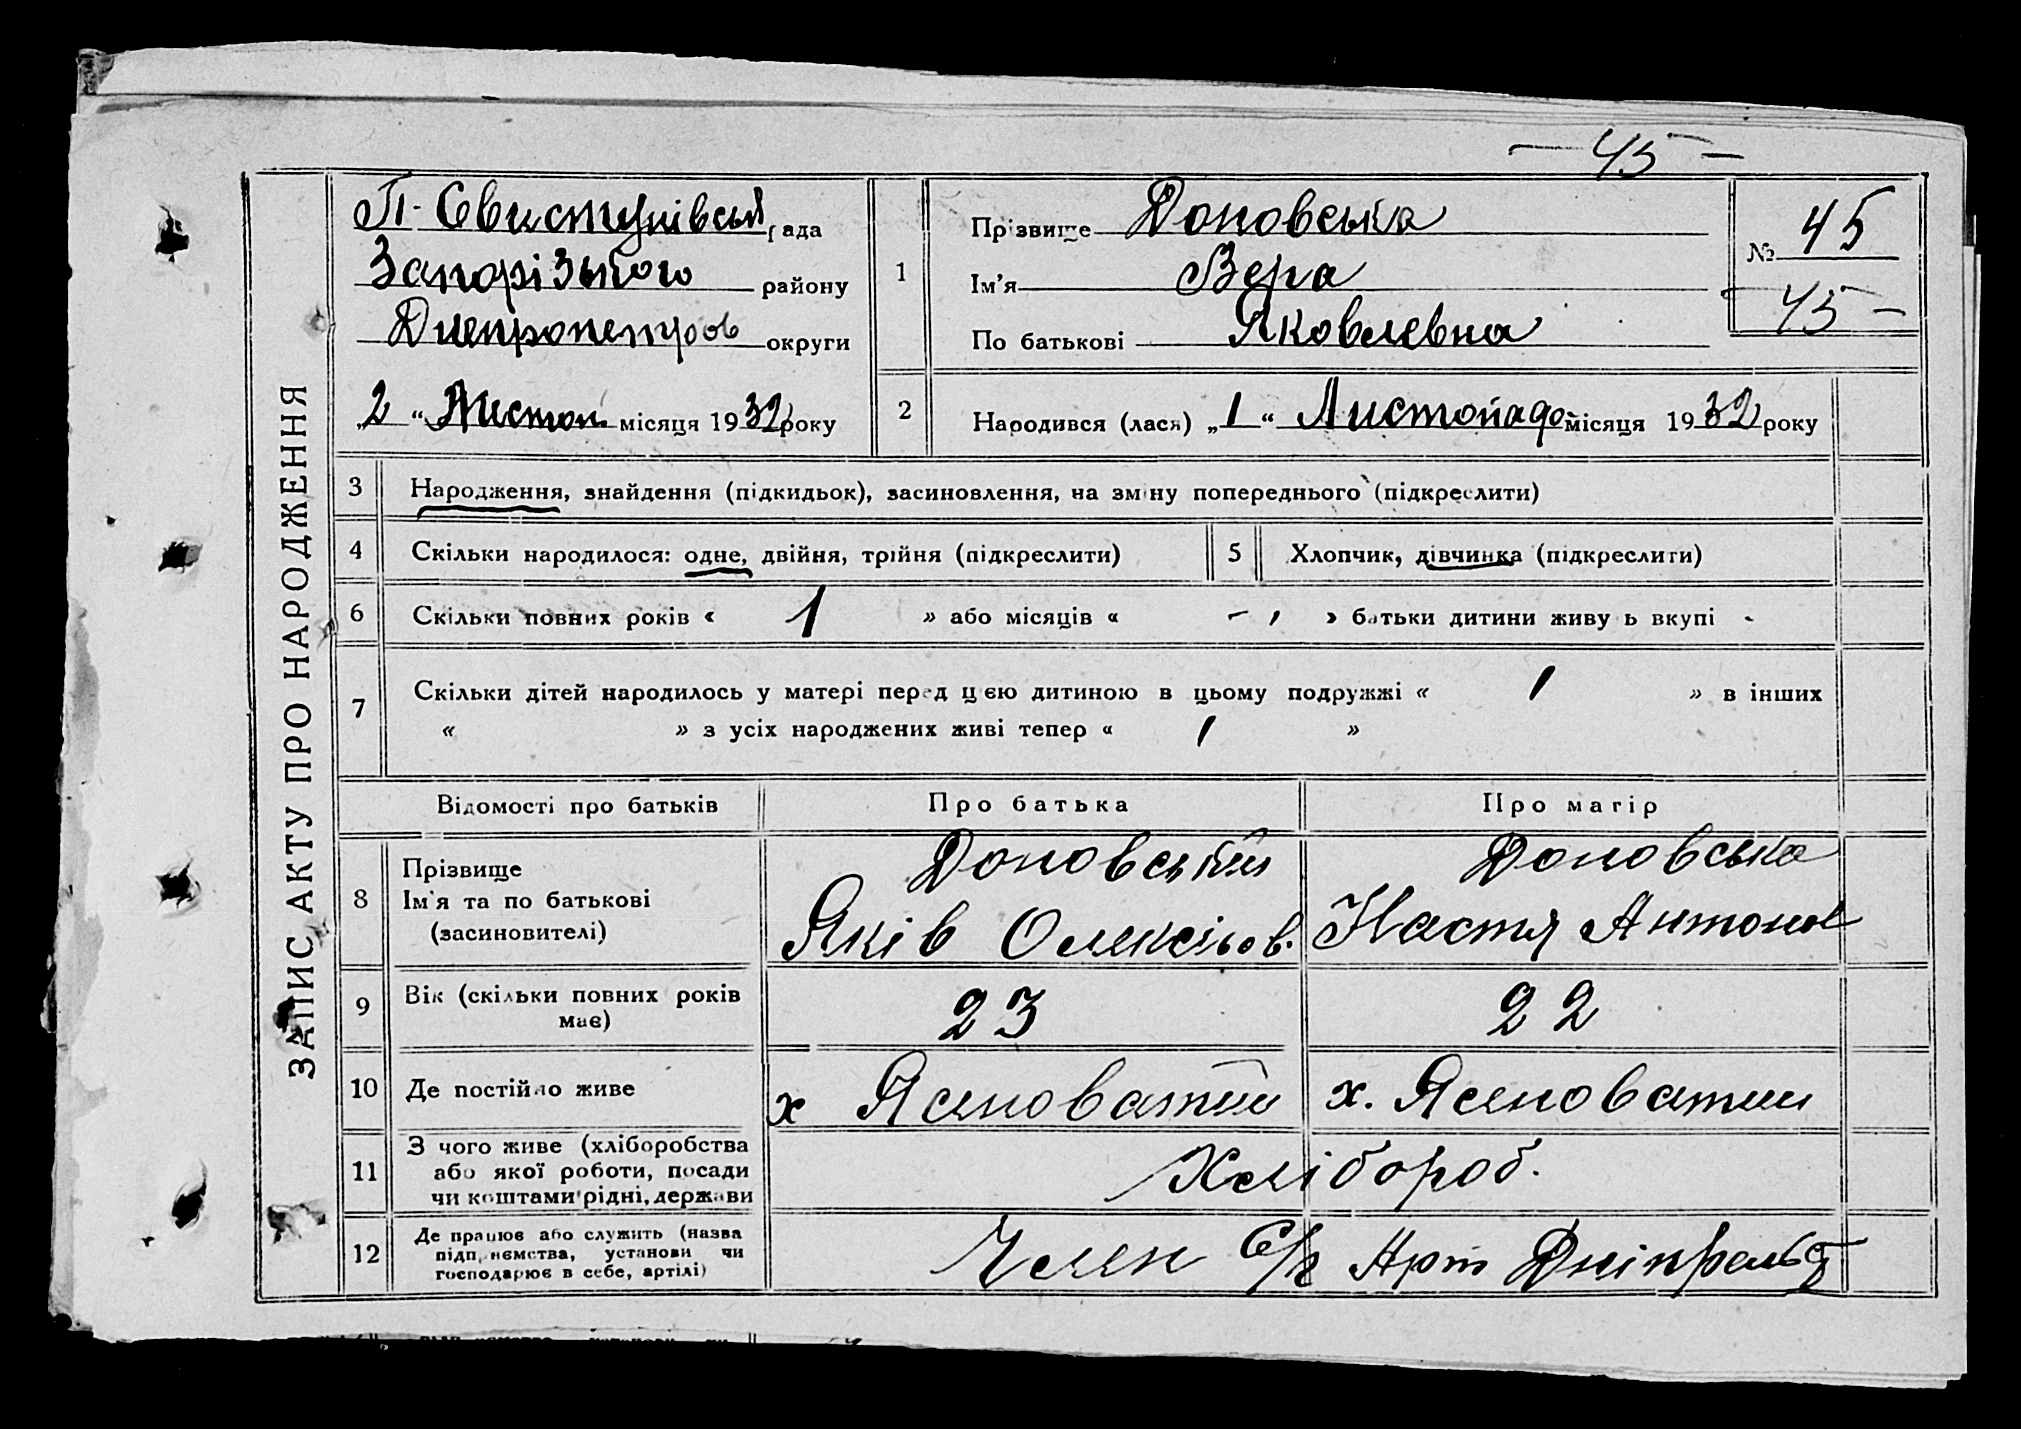 — 45 —
ЗАПИС АКТУ ПРО НАРОДЖЕННЯ
П-Свистунівськ рада
Запорізького району
Днепропетров округи
„2“ Листоп. місяця 1932 року
1
Прізвище Доновська
Ім'я Вера
По батькові Яковлевна
№ 45
— 45 —
2 Народився (лася) „1“ Листопадо місяця 1932 року
3 Народження, знайдення (підкидьок), засиновлення, на зміну попереднього (підкреслити)
4 Скільки народилося: одне, двійня, трійня (підкреслити) 5 Хлопчик, дівчинка (підкреслити)
6 Скільки повних років « 1 » або місяців « - » батьки дитини живуть вкупі
7 Скільки дітей народилось у матері перед цією дитиною в цьому подружжі « 1 » в інших
« » з усіх народжених живі тепер « 1 »
Відомості про батьків Про батька Про матір
8 Прізвище
Ім'я та по батькові
(засиновителі)
Доновський
Яків Олексійов.
Доновська
Настя Антонов
9 Вік (скільки повних років
має)
23 22
10 Де постійно живе х Ясиноватий х. Ясиноватий
11 З чого живе (хліборобства
або якої роботи, посади
чи коштами рідні, держави
Хлібороб.
12 Де працює або служить (назва
підприємства, установи чи
господарює в себе, артілі)
Член С/г Арт